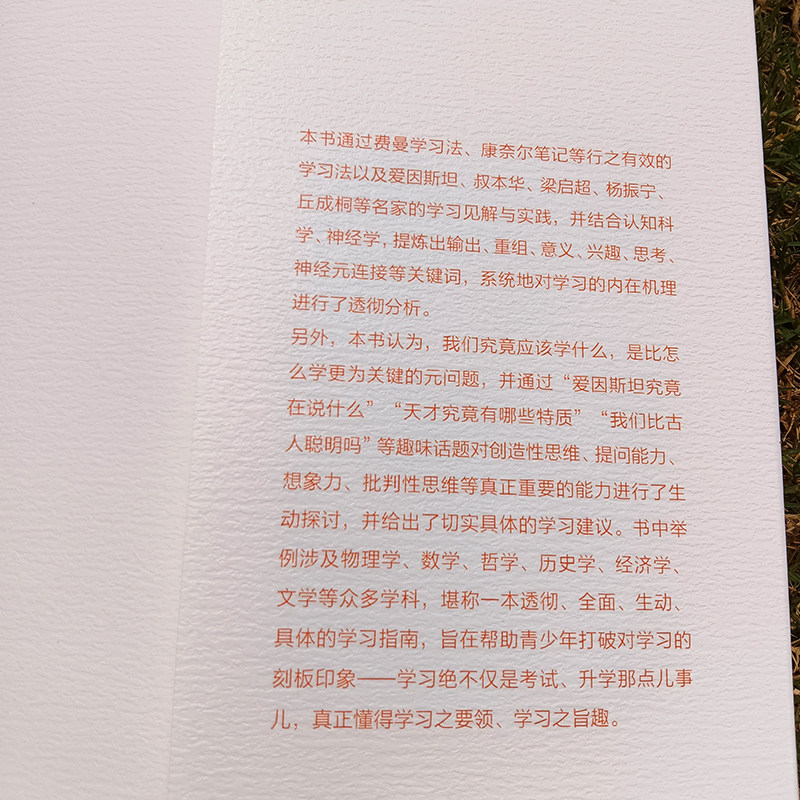 本书通过费曼学习法、康奈尔笔记等行之有效的
学习法以及爱因斯坦、叔本华、梁启超、杨振宁、
丘成桐等名家的学习见解与实践，并结合认知科
学、神经学，提炼出输出、重组、意义、兴趣、思考、
神经元连接等关键词，系统地对学习的内在机理
进行了透彻分析。
另外，本书认为，我们究竟应该学什么，是比怎
么学更为关键的元问题，并通过“爱因斯坦究竟
在说什么”“天才究竟有哪些特质”“我们比古
人聪明吗”等趣味话题对创造性思维、提问能力、
想象力、批判性思维等真正重要的能力进行了生
动探讨，并给出了切实具体的学习建议。书中举
例涉及物理学、数学、哲学、历史学、经济学、
文学等众多学科，堪称一本透彻、全面、生动、
具体的学习指南，旨在帮助青少年打破对学习的
刻板印象——学习绝不仅是考试、升学那点儿事
儿，真正懂得学习之要领、学习之旨趣。